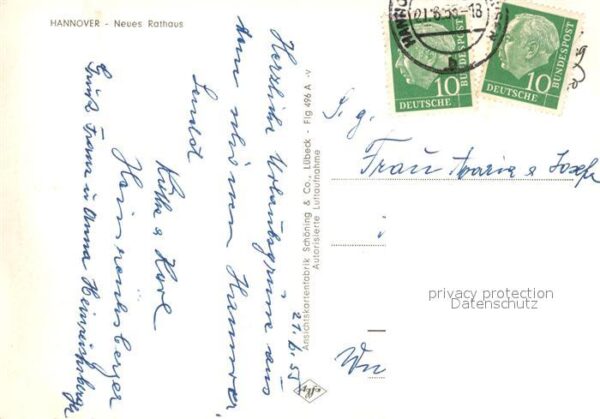 HANNOVER - Neues Rathaus
Herzliche Urlaubsgrüße aus
dem schönen Hannover,
sendet
Käthe & Karl
Heinrichsberger
Grüße Franz u Anna Heinrichsberger
21.6.55
Ansichtskartenfabrik Schöning & Co., Lübeck - Flg 496 A -v
Autorisierte Luftaufnahme
HANNOVER
21.6.55-18
b
10
DEUTSCHE
BUNDESPOST
10
DEUTSCHE
BUNDESPOST
S. g.
Frau Maria & Josefa
Wn
privacy protection
Datenschutz